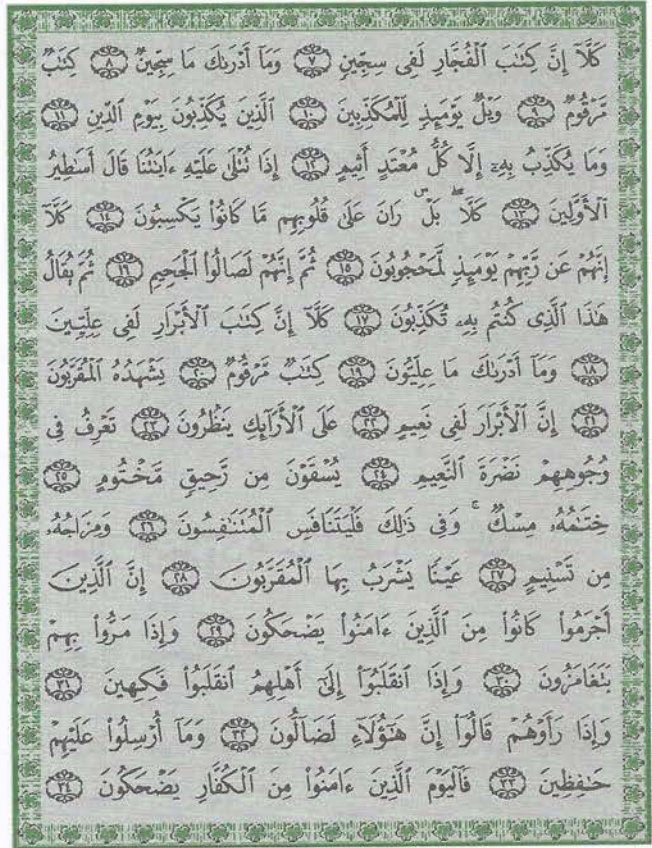 كَلَّآ إِنَّ كِتَٰبَ ٱلْفُجَّارِ لَفِى سِجِّينٍ ٧ وَمَآ أَدْرَىٰكَ مَا سِجِّينٌ ٨ كِتَٰبٌ
مَّرْقُومٌ ٩ وَيْلٌ يَوْمَئِذٍ لِّلْمُكَذِّبِينَ ١٠ ٱلَّذِينَ يُكَذِّبُونَ بِيَوْمِ ٱلدِّينِ ١١
وَمَا يُكَذِّبُ بِهِۦٓ إِلَّا كُلُّ مُعْتَدٍ أَثِيمٍ ١٢ إِذَا تُتْلَىٰ عَلَيْهِ ءَايَٰتُنَا قَالَ أَسَٰطِيرُ
ٱلْأَوَّلِينَ ١٣ كَلَّا ۖ بَلْ ۜ رَانَ عَلَىٰ قُلُوبِهِم مَّا كَانُوا۟ يَكْسِبُونَ ١٤ كَلَّآ
إِنَّهُمْ عَن رَّبِّهِمْ يَوْمَئِذٍ لَّمَحْجُوبُونَ ١٥ ثُمَّ إِنَّهُمْ لَصَالُوا۟ ٱلْجَحِيمِ ١٦ ثُمَّ يُقَالُ
هَٰذَا ٱلَّذِى كُنتُم بِهِۦ تُكَذِّبُونَ ١٧ كَلَّآ إِنَّ كِتَٰبَ ٱلْأَبْرَارِ لَفِى عِلِّيِّينَ
١٨ وَمَآ أَدْرَىٰكَ مَا عِلِّيُّونَ ١٩ كِتَٰبٌ مَّرْقُومٌ ٢٠ يَشْهَدُهُ ٱلْمُقَرَّبُونَ
٢١ إِنَّ ٱلْأَبْرَارَ لَفِى نَعِيمٍ ٢٢ عَلَى ٱلْأَرَآئِكِ يَنظُرُونَ ٢٣ تَعْرِفُ فِى
وُجُوهِهِمْ نَضْرَةَ ٱلنَّعِيمِ ٢٤ يُسْقَوْنَ مِن رَّحِيقٍ مَّخْتُومٍ ٢٥
خِتَٰمُهُۥ مِسْكٌ ۚ وَفِى ذَٰلِكَ فَلْيَتَنَافَسِ ٱلْمُتَنَٰفِسُونَ ٢٦ وَمِزَاجُهُۥ
مِن تَسْنِيمٍ ٢٧ عَيْنًا يَشْرَبُ بِهَا ٱلْمُقَرَّبُونَ ٢٨ إِنَّ ٱلَّذِينَ
أَجْرَمُوا۟ كَانُوا۟ مِنَ ٱلَّذِينَ ءَامَنُوا۟ يَضْحَكُونَ ٢٩ وَإِذَا مَرُّوا۟ بِهِمْ
يَتَغَامَزُونَ ٣٠ وَإِذَا ٱنقَلَبُوٓا۟ إِلَىٰٓ أَهْلِهِمُ ٱنقَلَبُوا۟ فَكِهِينَ ٣١
وَإِذَا رَأَوْهُمْ قَالُوٓا۟ إِنَّ هَٰٓؤُلَآءِ لَضَآلُّونَ ٣٢ وَمَآ أُرْسِلُوا۟ عَلَيْهِمْ
حَٰفِظِينَ ٣٣ فَٱلْيَوْمَ ٱلَّذِينَ ءَامَنُوا۟ مِنَ ٱلْكُفَّارِ يَضْحَكُونَ ٣٤